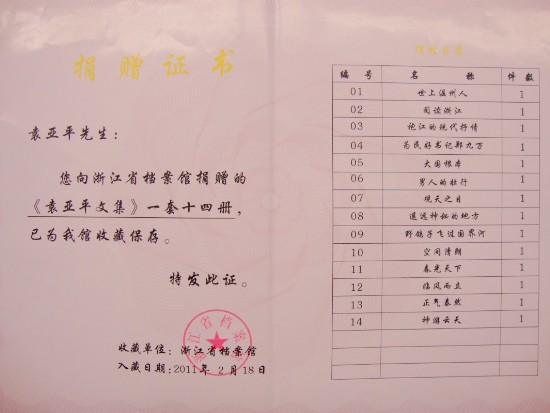 捐赠证书
袁亚平先生：
您向浙江省档案馆捐赠的
《袁亚平文集》一套十四册，
已为我馆收藏保存。
特发此证。
收藏单位：浙江省档案馆
入藏日期：2011年 2月18日
浙江省档案
编号 名称 件数
01 世上温州人 1
02 阅读浙江 1
03 沧江的现代抒情 1
04 为民好书记郑九万 1
05 大国根本 1
06 男人的壮行 1
07 观天之目 1
08 遥远神秘的地方 1
09 野鸽子飞过国界河 1
10 空间清朗 1
11 春光天下 1
12 临风而立 1
13 正气泰然 1
14 神游云天 1